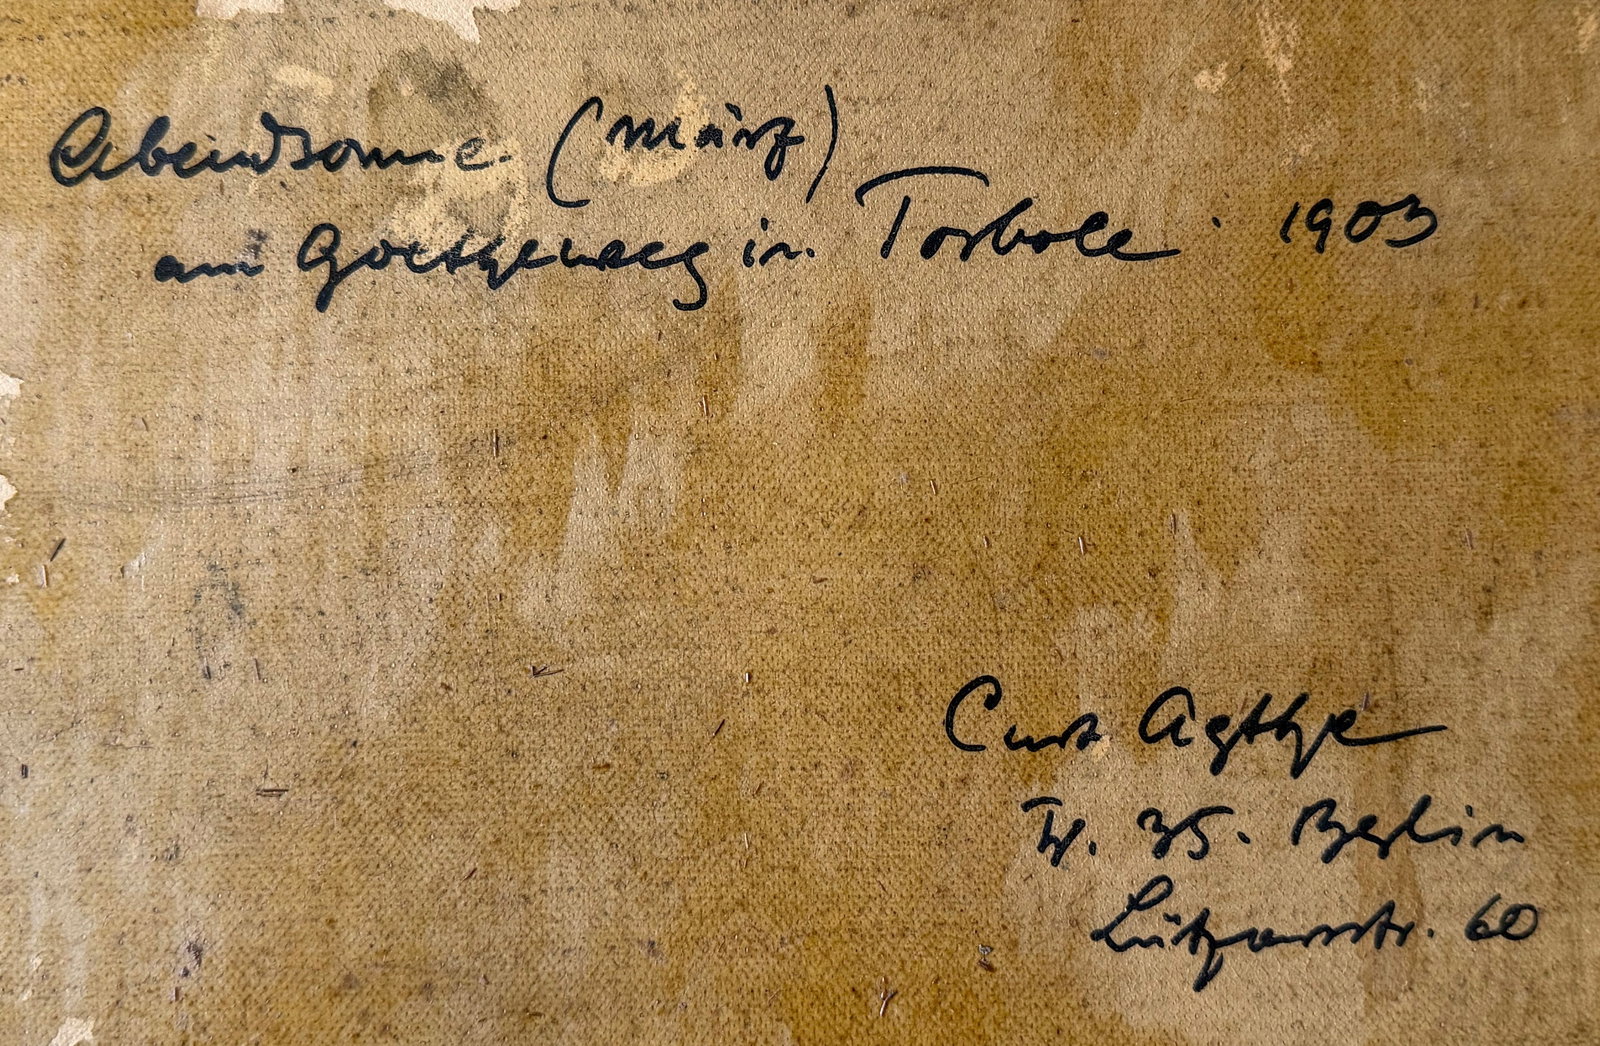 Abendsonne (März)
am Goetheweg in Torbole. 1903
Curt Agthe
W. 35. Berlin
Lützowstr. 60